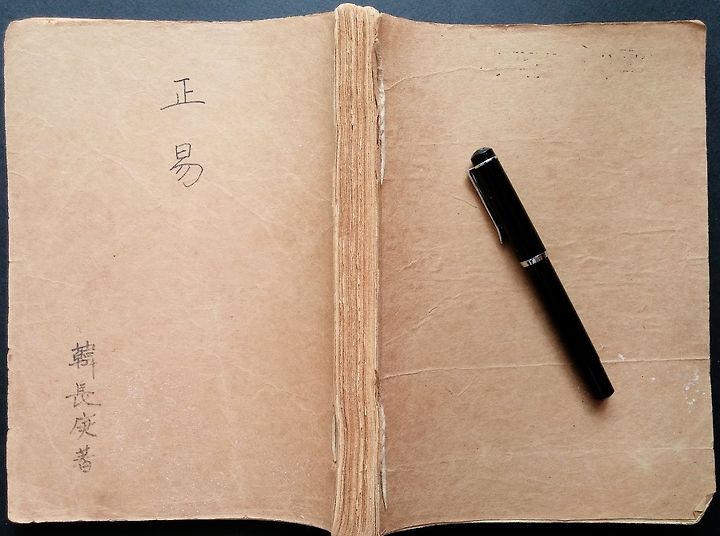 正易
韓長庚著